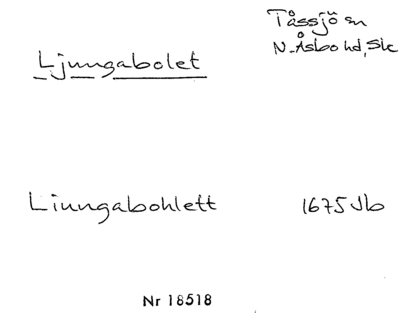 Tåssjö sn
Ljungabolet
N. Åsbo hd, Sk
Liungabohlett 1675 Jb
Nr 18518